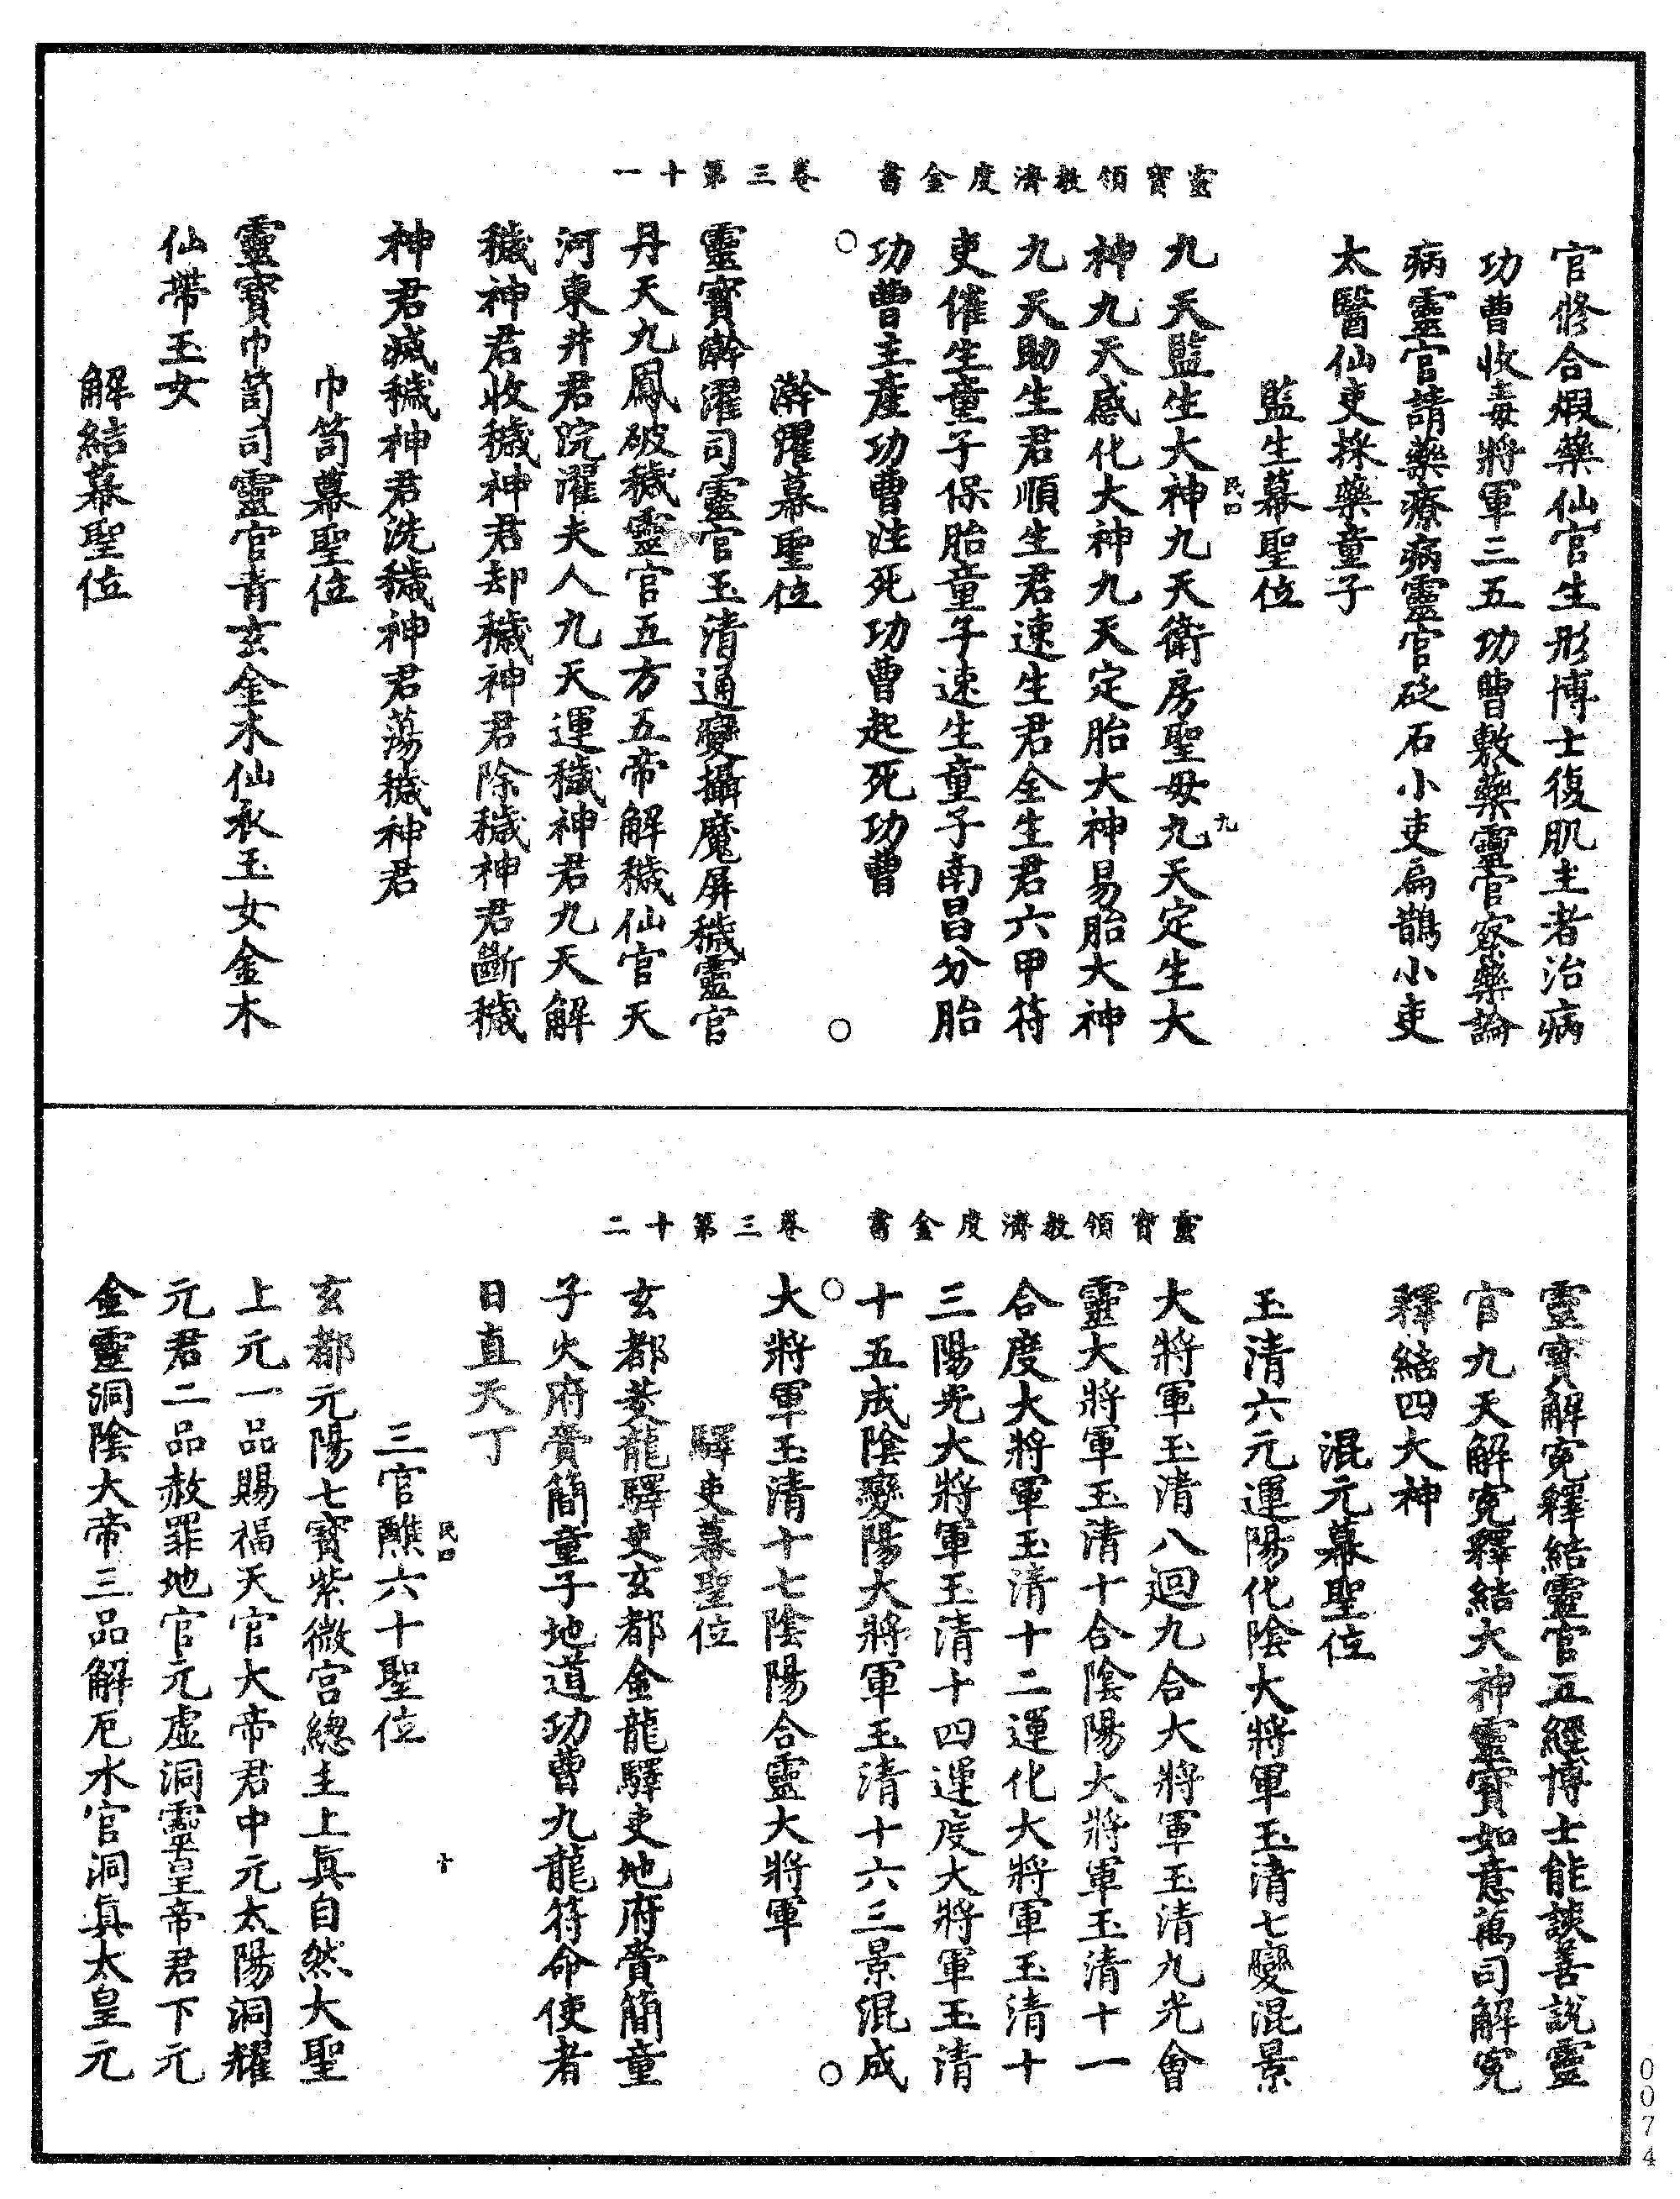 靈寶領教濟度金書　卷三第十一
官修合煆藥仙官生形博士復肌主者治病
功曹收毒將軍三五功曹敷藥靈官察藥論
病靈官請藥療病靈官砭石小吏扁鵲小吏
太醫仙吏採藥童子
監生幕聖位
民口　九
九天監生大神九天衛房聖母九天定生大
神九天感化大神九天定胎大神易胎大神
九天助生君順生君速生君全生君六甲符
吏催生童子保胎童子速生童子南昌分胎
功曹主產功曹注死功曹起死功曹
澣濯幕聖位
靈寶澣濯司靈官玉清通變攝魔屏穢靈官
丹天九鳳破穢靈官五方五帝解穢仙官天
河東井君院濯夫人九天運穢神君九天解
穢神君收穢神君却穢神君除穢神君斷穢
神君滅穢神君洗穢神君蕩穢神君
巾笥幕聖位
靈寶巾笥司靈官青玄金木仙衣玉女金木
仙帶玉女
解結幕聖位
靈寶領教濟度金書　卷三第十二
靈寶解寃釋結靈官五經博士能談善說靈
官九天解寃釋結大神靈寶如意萬司解寃
釋結四大神
混元幕聖位
玉清六元運陽化陰大將軍玉清七變混景
大將軍玉清八迴九合大將軍玉清九光會
靈大將軍玉清十合陰陽大將軍玉清十一
合度大將軍玉清十二運化大將軍玉清十
三陽光大將軍玉清十四運度大將軍玉清
十五成陰變陽大將軍玉清十六三景混成
大將軍玉清十七陰陽合靈大將軍
驛吏幕聖位
玄都黃龍驛吏玄都金龍驛吏地府賫簡童
子火府賫簡童子地道功曹九龍符命使者
日直天丁
民口　十
三官醮六十聖位
玄都元陽七寶紫微宮總主上眞自然大聖
上元一品賜福天官大帝君中元太陽洞耀
元君二品赦罪地官元虛洞靈皇帝君下元
金靈洞陰大帝三品解厄水官洞眞太皇元
0074